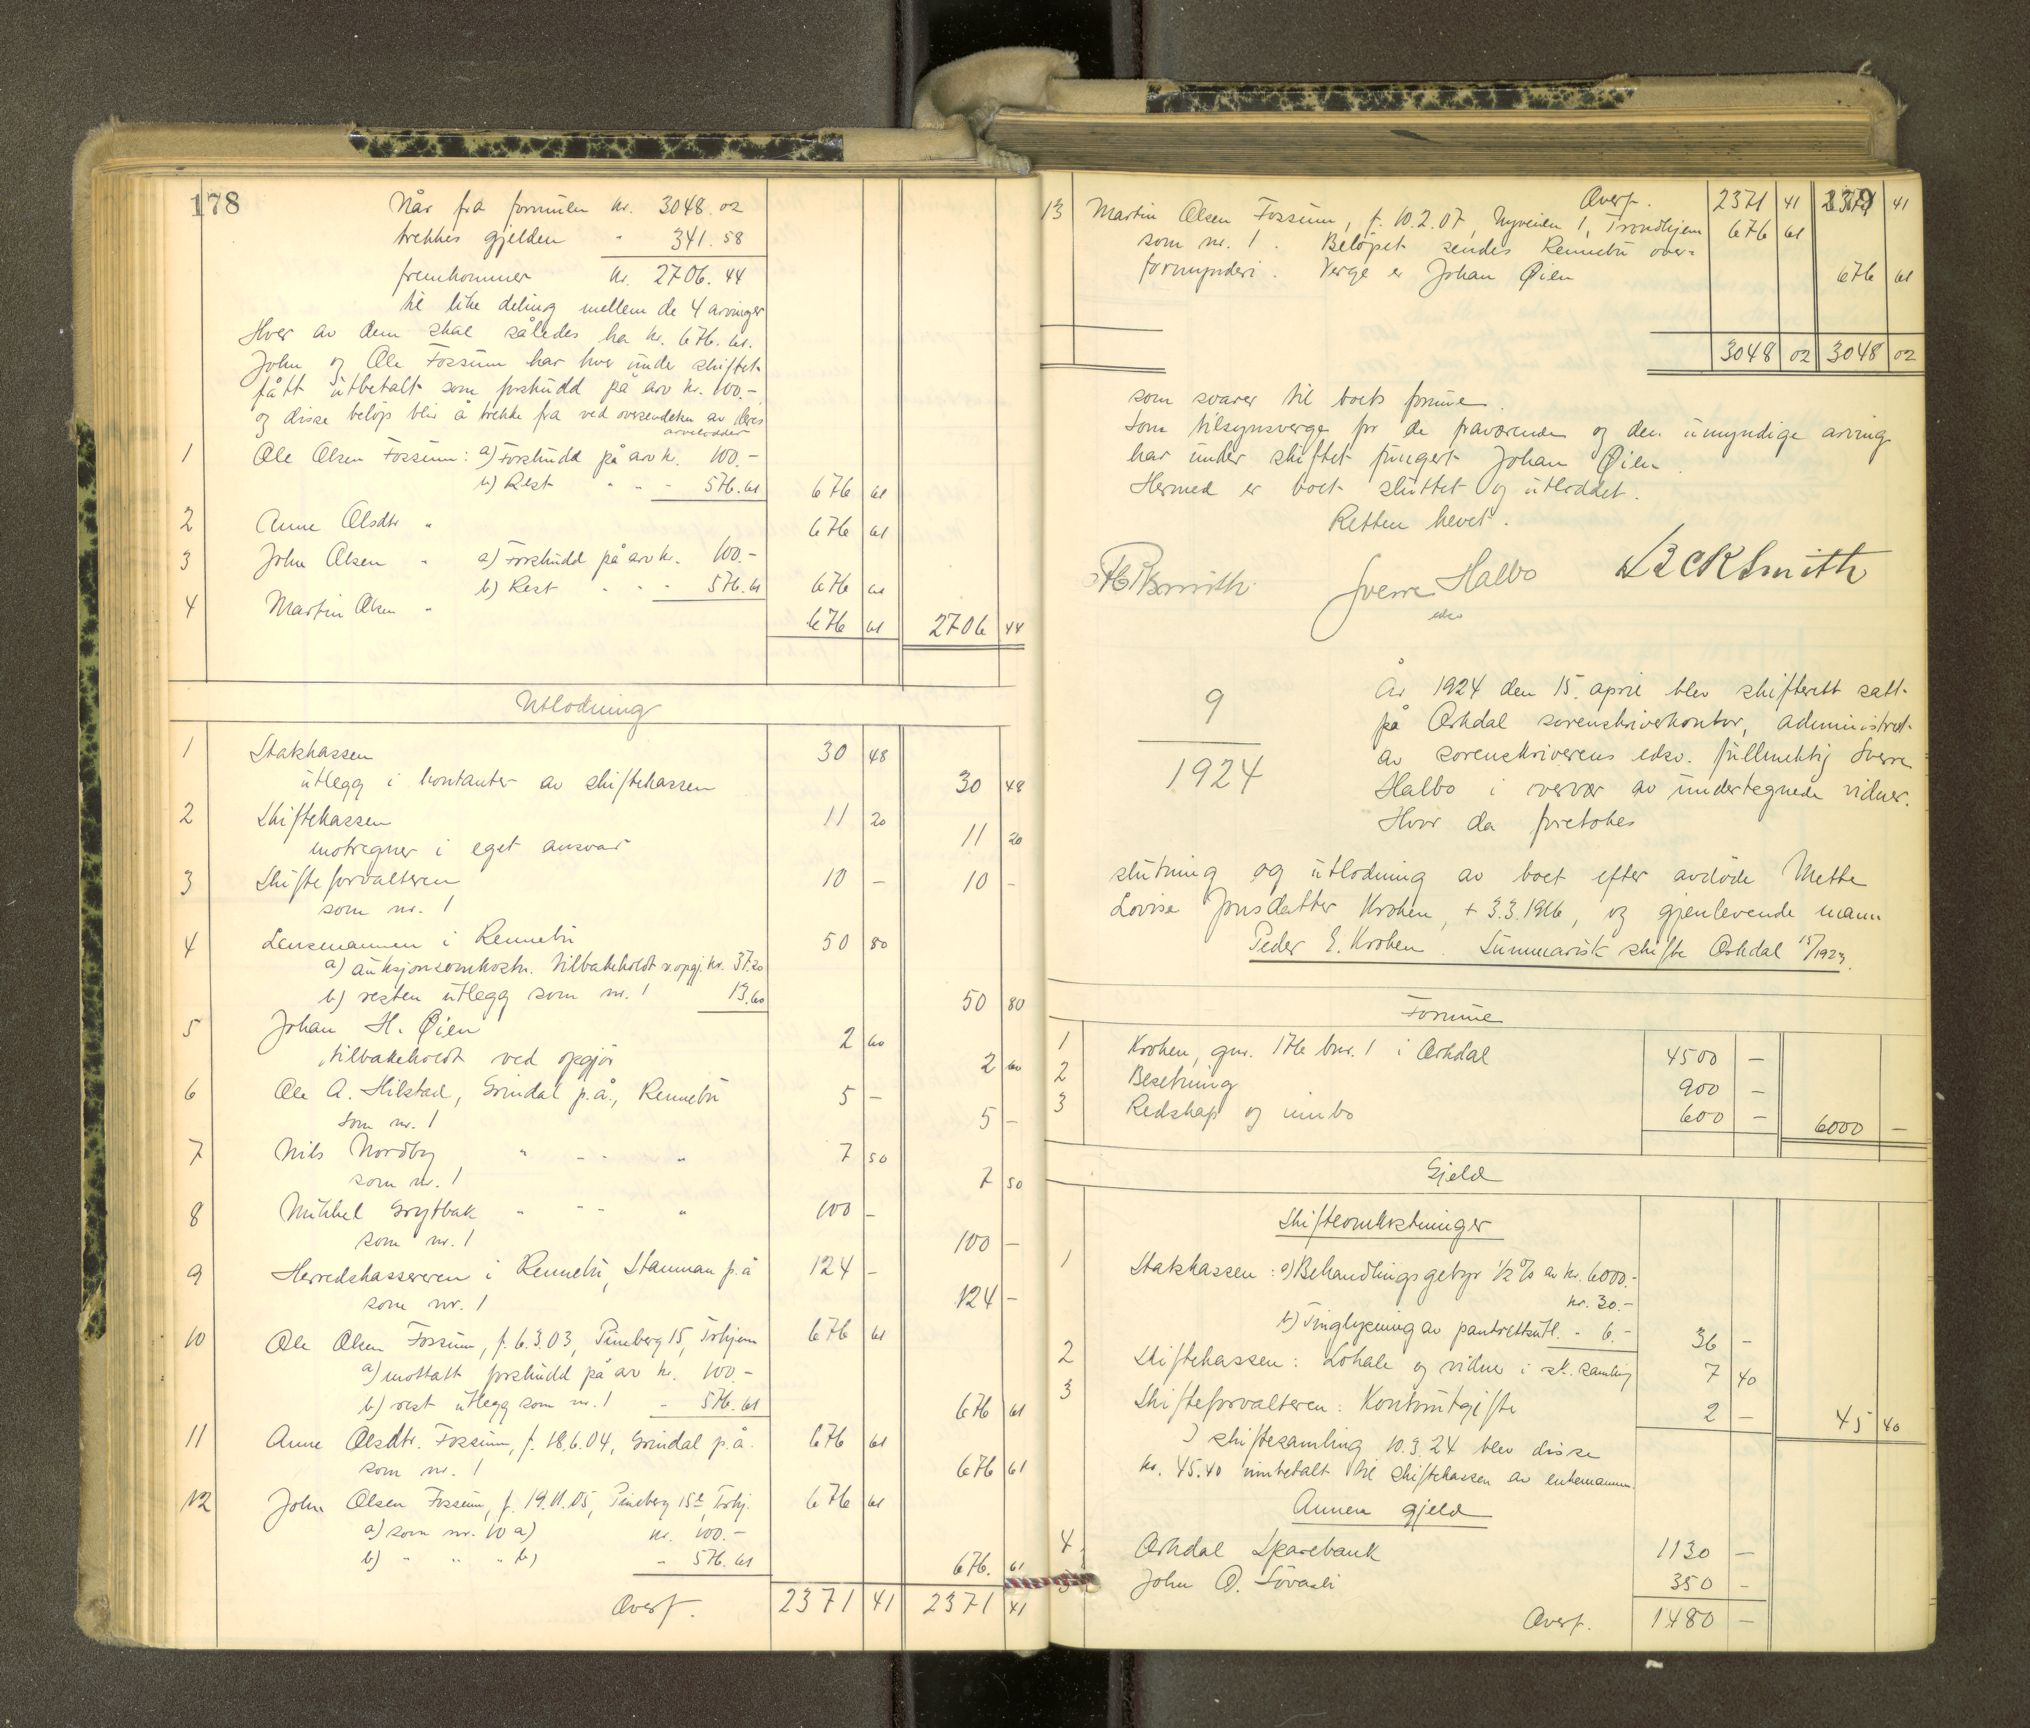 178
Når fra formuen kr. 3048.02
trekkes gjelden " 341.58
fremkommer kr. 2706.44
til like deling mellem de 4 arvinger
Hver av dem skal således ha kr. 676.61.
John og Ole Fossum har hver under skiftet
fått utbetalt som forskudd på arv kr. 100.-
og disse beløp blir å trekke fra ved oversendelsen av deres
arvelodder
1 Ole Olsen Fossum: a) Forskudd på arv kr. 100.-
b) Rest " " - 576.61 676 61
2 Anne Olsdtr " 676 61
3 John Olsen " a) Forskudd på arv kr. 100.-
b) Rest " " - 576.61 676 61
4 Martin Olsen " 676 61 2706 44
Utlodning
1 Statskassen 30 48
utlegg i kontanter av skiftekassen 30 48
2 Skiftekassen 11 20
motregner i eget ansvar 11 20
3 Skifteforvalteren 10 - 10 -
som nr. 1
4 Lensmannen i Rennebu 50 80
a) auksjonsomkostn. tilbakeholdt v. opgj. kr. 37.20
b) resten utlegg som nr. 1 13.60 50 80
5 Johan H. Øien 2 60
tilbakeholdt ved opgjør 2 60
6 Ole A. Hilstad, Grindal p.å., Rennebu 5 -
som nr. 1 5 -
7 Nils Nordby " - - " 7 50
som nr. 1 7 50
8 Mikkel Grytbak " - - " 100 -
som nr. 1 100 -
9 Herredskassereren i Rennebu, Stamnan p.å 124 -
som nr. 1 124 -
10 Ole Olsen Fossum, f. 6.3.03, Pineberg 15, Trhjem 676 61
a) mottatt forskudd på arv kr. 100.-
b) rest utlegg som nr. 1 - 576.61 676 61
11 Anne Olsdtr. Fossum, f. 18.6.04, Grindal p.å. 676 61
som nr. 1 676 61
12 John Olsen Fossum, f. 19.11.05, Pineberg 15, Trhj. 676 61
a) som nr. 10 a) kr. 100.-
b) " " " b) - 576.61 676. 61
Overf. 2371 41 2371 41
Overf. 2371 41 2371 41
13 Martin Olsen Fossum, f. 10.2.07, Nyveien 1, Trondhjem 676 61
som nr. 1. Beløpet sendes Rennebu over=
formynderi. Verge er Johan Øien 676 61
3048 02 3048 02
som svarer til boets formue.
Som tilsynsverge for de fraværende og den umyndige arving
har under skiftet fungert Johan Øien.
Hermed er boet sluttet og utloddet.
Retten hevet.
Sverre Halbo
edsv
9
1924
År 1924 den 15. april blev skifterett satt
på Orkdal sorenskriverkontor, administrert
av sorenskriverens edsv. fullmektig Sverre
Halbo i overvær av undertegnede vidner.
Hvor da foretokes
slutning og utlodning av boet efter avdøde Mette
Lovise Jonsdatter Kroken, + 3.3.1916, og gjenlevende mann
Peder E. Kroken. Summarisk skifte Orkdal 15/1923.
Formue
1 Kroken, gnr. 176 bnr. 1 i Orkdal 4500 -
2 Besetning 900 -
3 Redskap og innbo 600 - 6000 -
Gjeld
Skifteomkostninger
1 Statskassen: a) Behandlingsgebyr 1/2 % av kr. 6000.-
kr. 30.-
b) Tinglysning av pantrettsutl. - 6.- 36 -
2 Skiftekassen: Lokale og vidner i sk. samling 7 40
3 Skifteforvalteren: Kontorutgifter 2 - 45 40
I skiftesamling 10.3.24 blev disse
kr. 45.40 innbetalt til skiftekassen av enkemannen.
Annen gjeld
4 Orkdal Sparebank 1130 -
5 John O. Søvasli 350 -
Overf. 1480 -